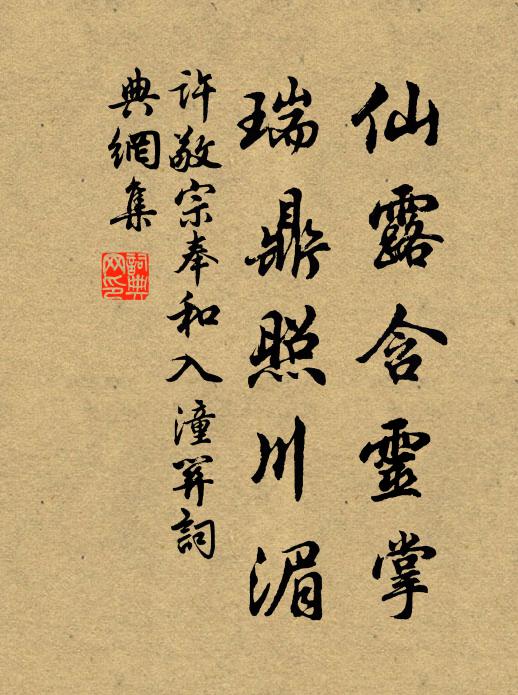 仙露含靈掌
瑞鼎照川湄
許敬宗奉和入潼關詞
典網集
詞典
网印